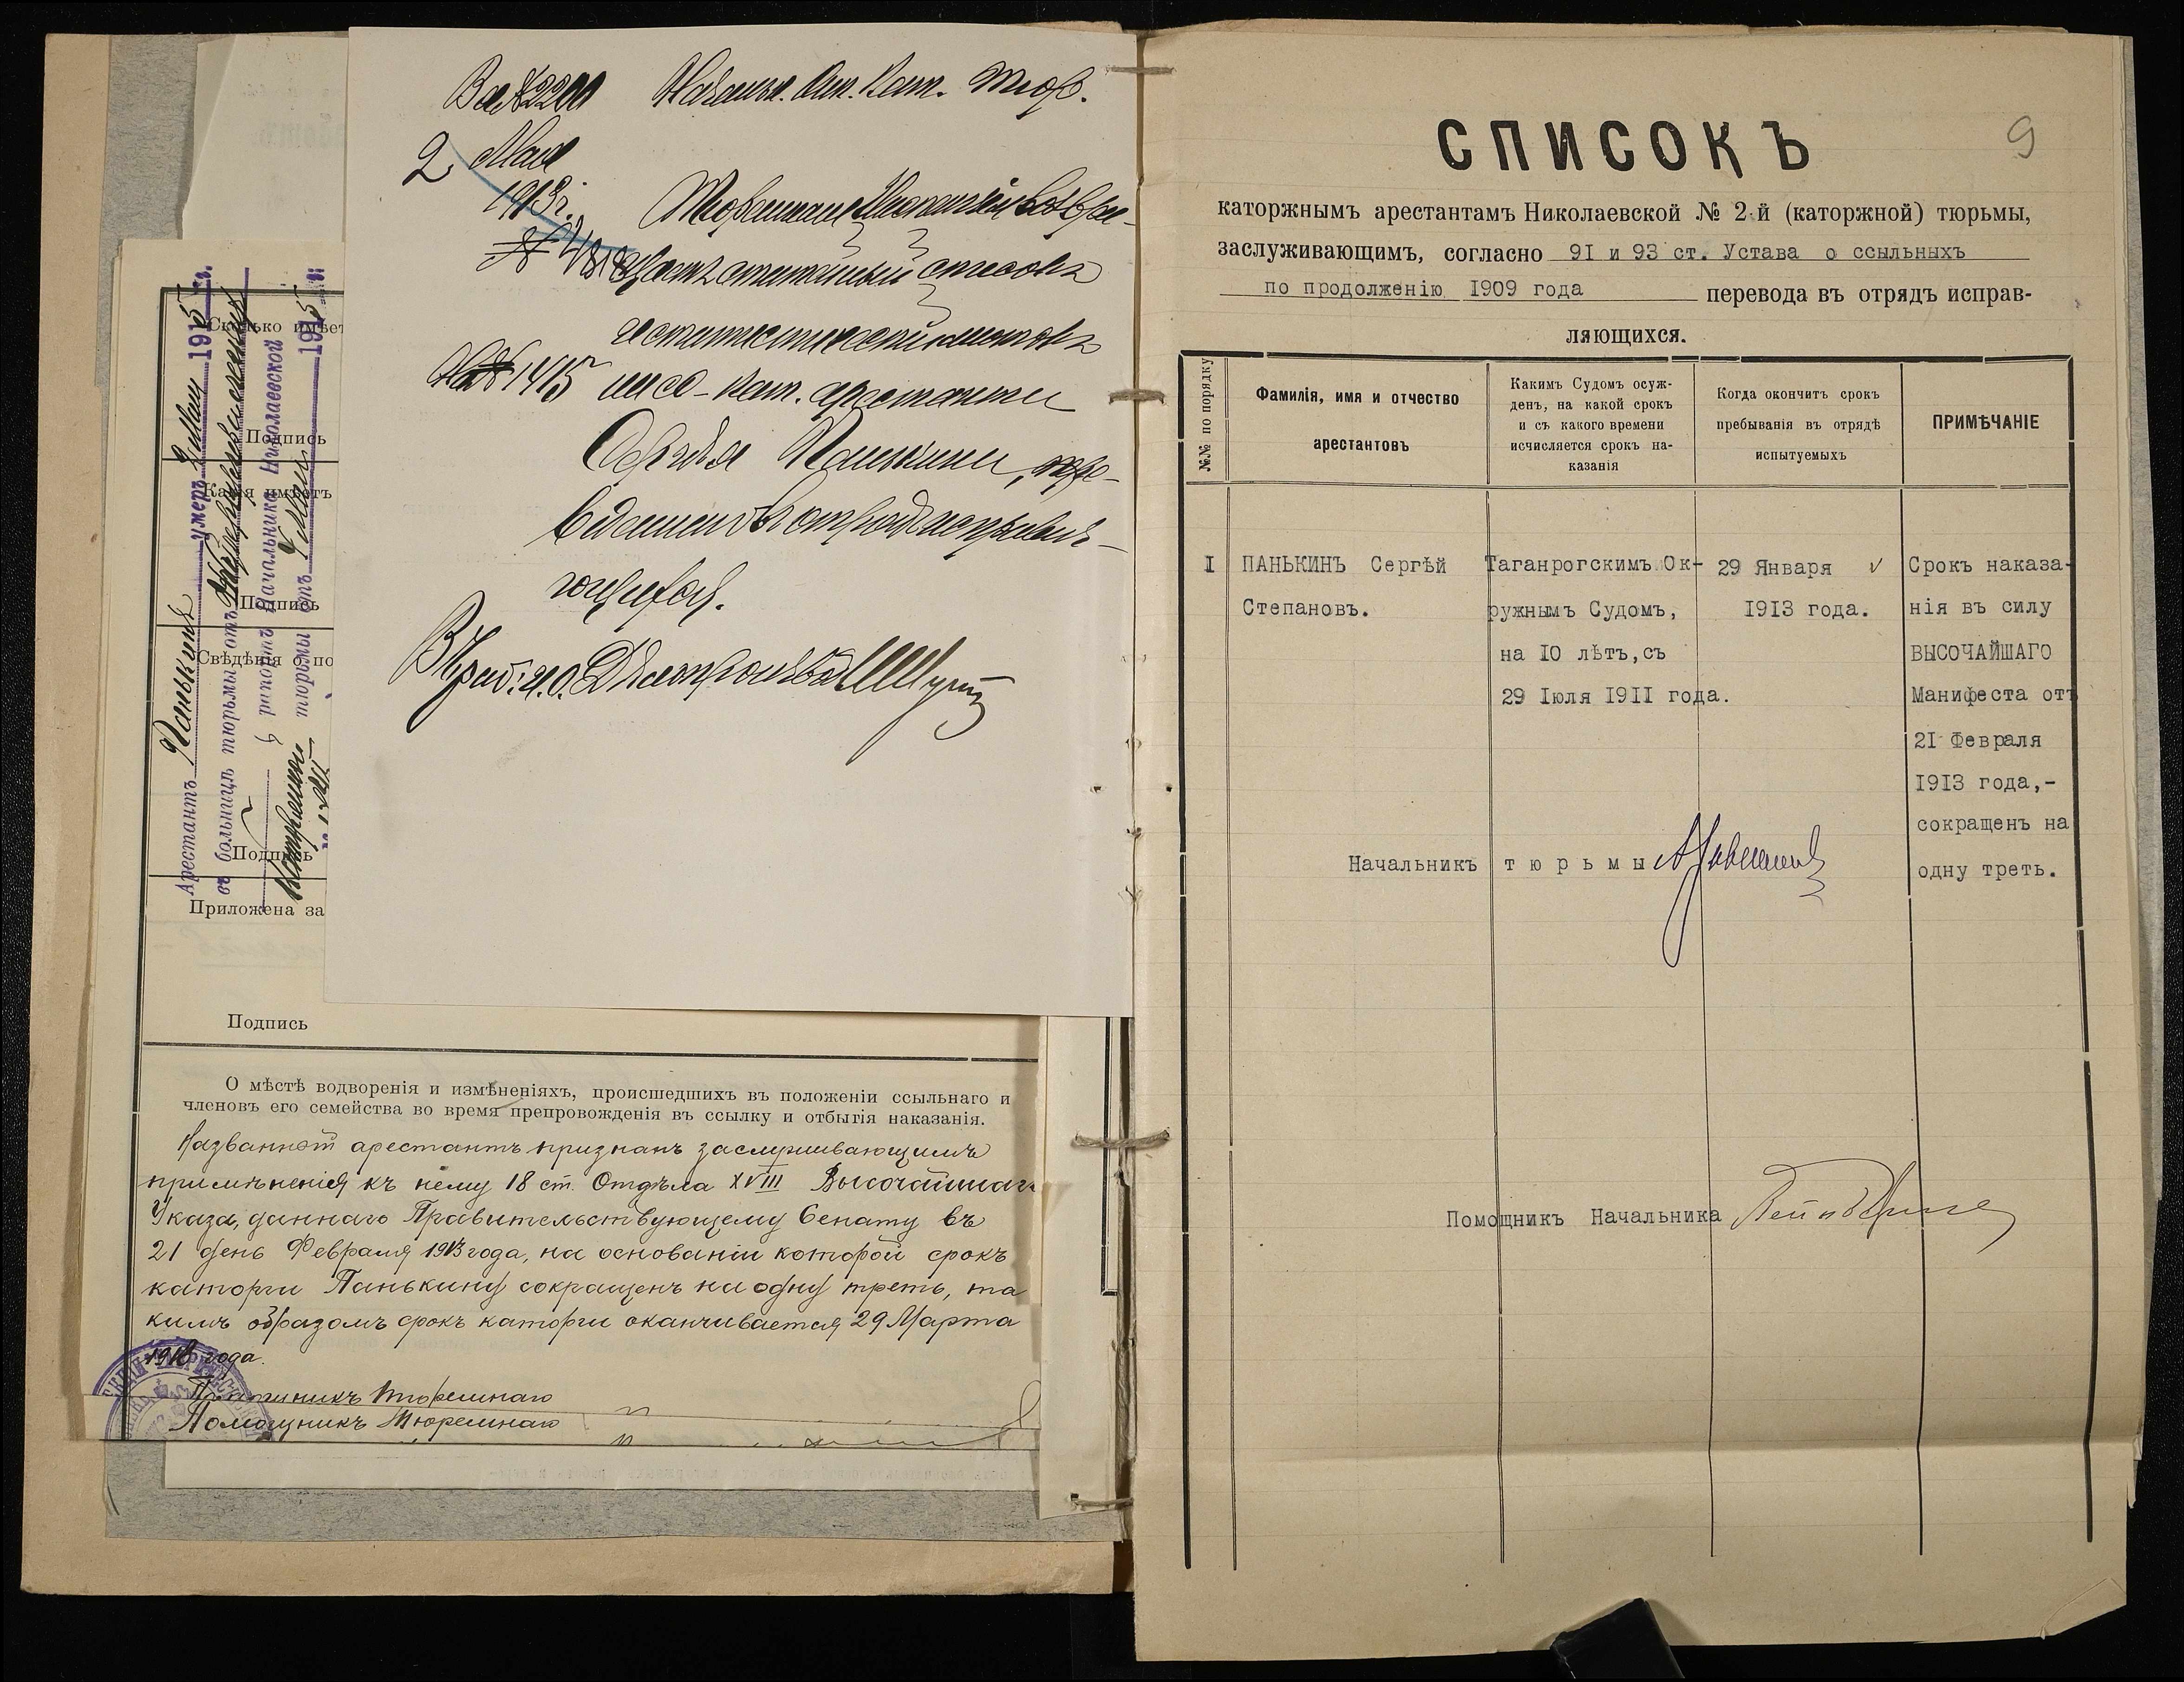 Начальн. Кат. Тюр.
2 Мая
1913 г.
Тюремная Инспекція возвра-
щаетъ статейный списокъ
№ 1415 ссыльно-кат. арестанта
Сергѣя Панькина, пере-
веденнаго въ отрядъ исправля-
ющихся.
Арестантъ Панькинъ умеръ Мая 1915 г.
въ больницѣ тюрьмы отъ
рапортъ Начальника Николаевской
тюрьмы отъ Мая 1915 г.
Сколько имѣетъ
Подпись
Какія имѣетъ
Подпись
Свѣдѣнія о по
Подпись
Приложена за
Подпись
О мѣстѣ водворенія и измѣненіяхъ, происшедшихъ въ положеніи ссыльнаго и
членовъ его семейства во время препровожденія въ ссылку и отбытія наказанія.
Названный арестантъ признанъ заслуживающимъ
примѣненія къ нему 18 ст. Отдѣла XVIII Высочайшаго
Указа, даннаго Правительствующему Сенату въ
21 день Февраля 1913 года, на основаніи которой срокъ
каторги Панькину сокращенъ на одну треть, та
кимъ образомъ срокъ каторги оканчивается 29 Марта
1918 года.
Помощникъ Тюремнаго
Помощникъ Тюремнаго
9
СПИСОКЪ
каторжнымъ арестантамъ Николаевской № 2-й (каторжной) тюрьмы,
заслуживающимъ, согласно 91 и 93 ст. Устава о ссыльныхъ
по продолженію 1909 года перевода въ отрядъ исправ-
ляющихся.
№№ по порядку
Фамилія, имя и отчество
арестантовъ
Какимъ Судомъ осуж-
денъ, на какой срокъ
и съ какого времени
исчисляется срокъ на-
казанія
Когда окончитъ срокъ
пребыванія въ отрядѣ
испытуемыхъ
ПРИМѢЧАНІЕ
I ПАНЬКИНЪ Сергѣй
Степановъ.
Таганрогскимъ Ок-
ружнымъ Судомъ,
на 10 лѣтъ, съ
29 Іюля 1911 года.
29 Января
1913 года.
Срокъ наказа-
нія въ силу
ВЫСОЧАЙШАГО
Манифеста отъ
21 Февраля
1913 года,-
сокращенъ на
одну треть.
Начальникъ тюрьмы
Помощникъ Начальника